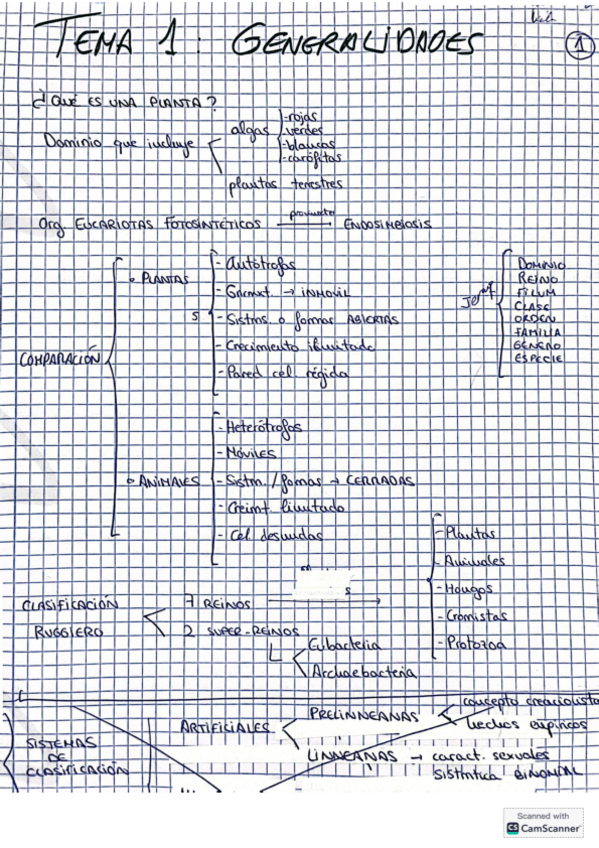 TEMA 1: GENERALIDADES
1
¿QUÉ ES UNA PLANTA?
Dominio que incluye
algas
-rojas
-verdes
-blancas
-carófitas
plantas terrestres
Org. EUCARIOTAS FOTOSINTÉTICOS
ENDOSIMBIOSIS
COMPARACIÓN
PLANTAS
-Autótrofas
→ INMÓVIL
-Sistms. o formas ABIERTAS
-Crecimiento ilimitado
-Pared cel. rígida
DOMINIO
REINO
FILUM
CLASE
ORDEN
FAMILIA
GÉNERO
ESPECIE
ANIMALES
-Heterótrofos
-Móviles
-Sistm. / formas → CERRADAS
-Creimt. limitado
-Cel desnudas
CLASIFICACIÓN
RUGGIERO
7 REINOS
-Plantas
-Animales
-Hongos
-Cromistas
-Protozoa
2 SUPER-REINOS
Eubacteria
Archaebacteria
SISTEMAS
DE
CLASIFICACIÓN
ARTIFICIALES
PRELINNEANAS
concepto creacionista
hechos empíricos
LINNEANAS → caract. sexuales
sistmtica BINOMIAL
Scanned with
CS CamScanner